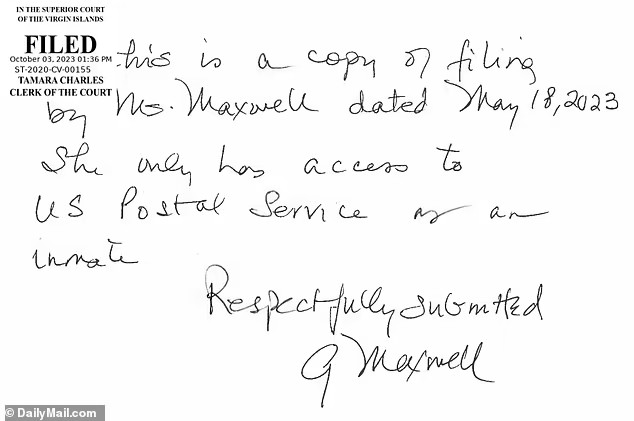 IN THE SUPERIOR COURT
OF THE VIRGIN ISLANDS
FILED
October 03, 2023 01:36 PM
ST-2020-CV-00155
TAMARA CHARLES
CLERK OF THE COURT
this is a copy of filing
by Ms. Maxwell dated May 18, 2023
She only has access to
US Postal Service as an
inmate
Respectfully submitted
G Maxwell
© DailyMail.com